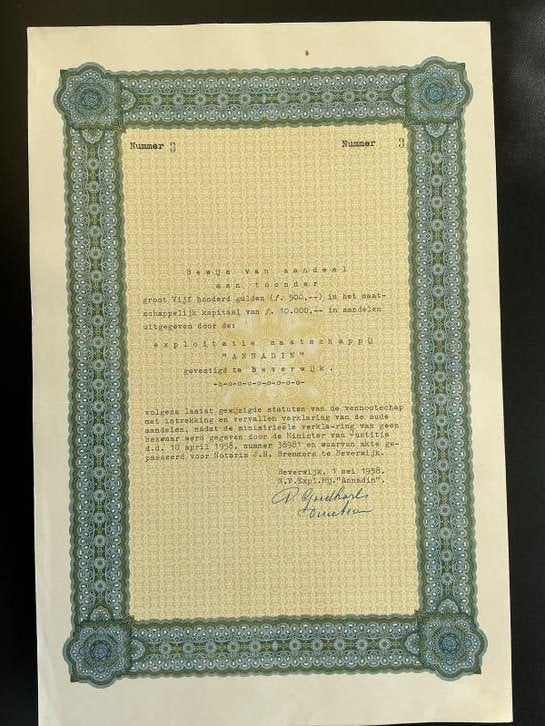 Nummer 3 Nummer 3
Bewijs van aandeel
aan toonder
groot Vijf honderd gulden (ƒ. 500,--) in het maat-
schappelijk kapitaal van ƒ. 10.000,-- in aandelen
uitgegeven door de:
exploitatie maatschappij
"ANNADIN"
gevestigd te Beverwijk.
-o-o-o-o-o-o-o-o-o-
volgens laatst gewijzigde statuten van de vennootschap
met intrekking en vervallen verklaring van de oude
aandelen, nadat de ministrieële verkla-ring van geen
bezwaar werd gegeven door de Minister van Justitie
d.d. 10 april 1958, nummer 38981 en waarvan akte ge-
passeerd voor Notaris J.H. Bremmers te Beverwijk.
Beverwijk, 1 mei 1958.
N.V.Expl.Mij."Annadin".